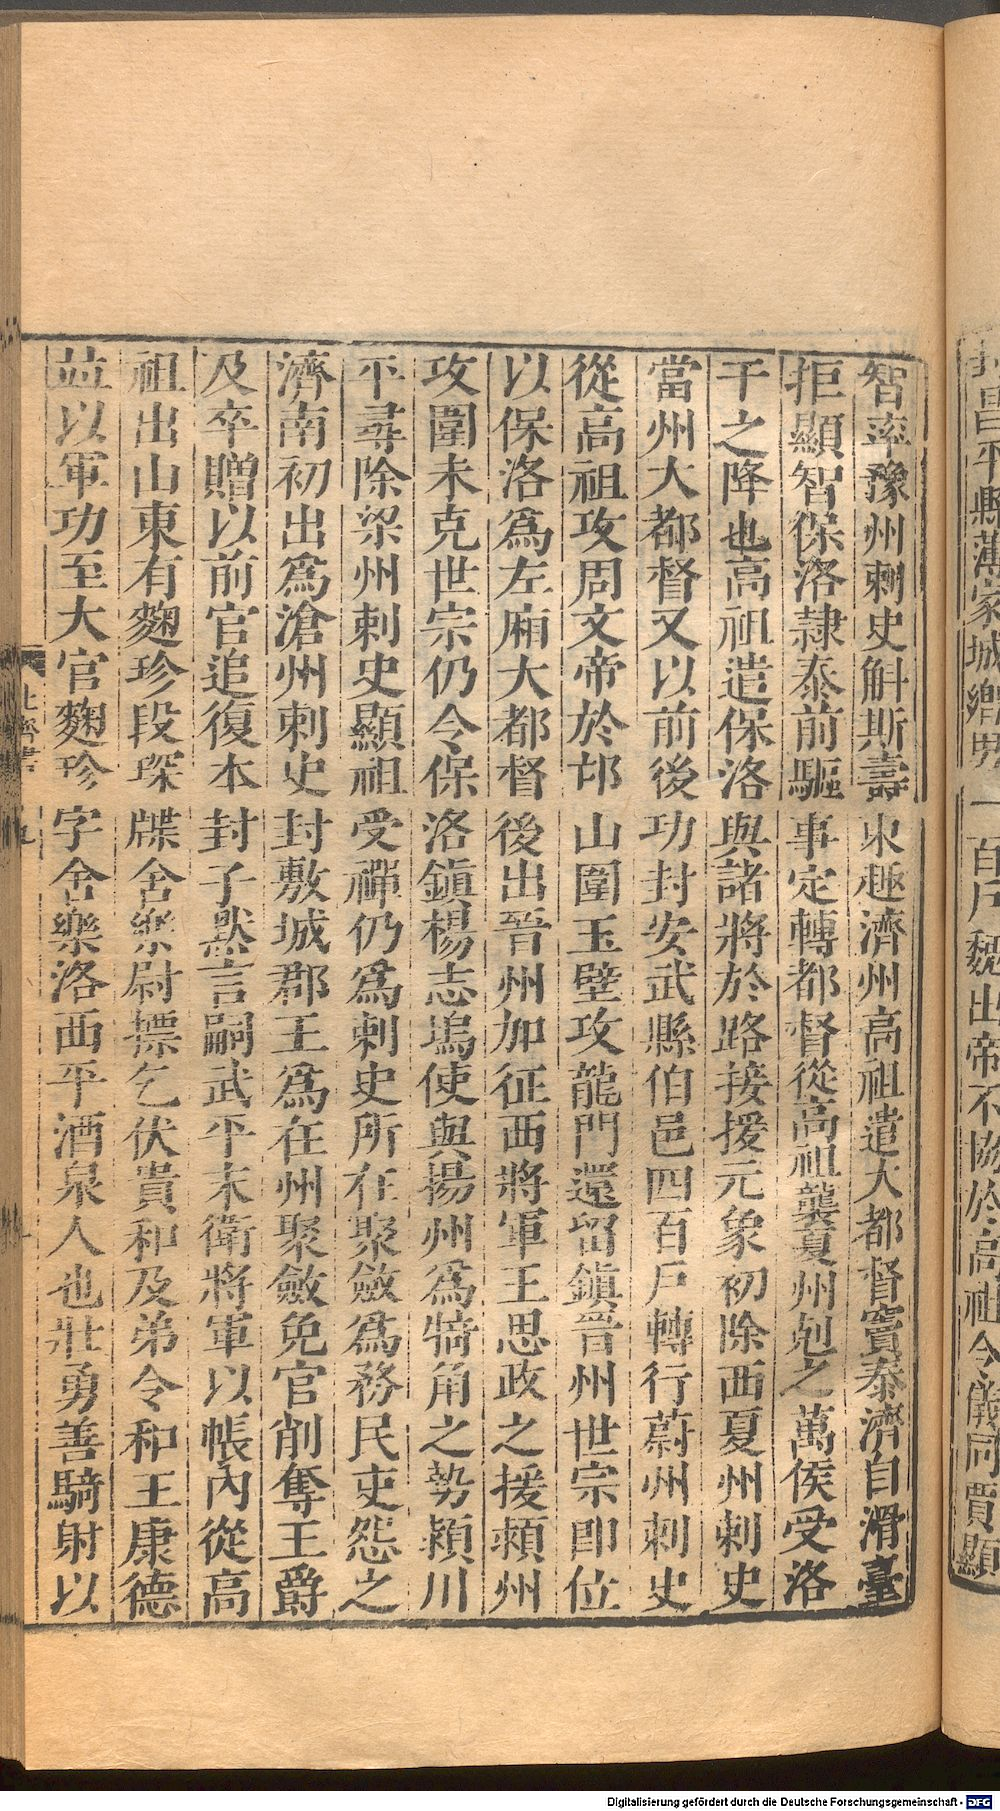 昌平縣薄家城鄉男一百戶魏出帝不協於高祖令儀同賈顯
智率豫州刺史斛斯壽東趣濟州高祖遣大都督竇泰濟自滑臺
拒顯智保洛隸泰前驅事定轉都督從高祖襲夏州剋之萬侯受洛
干之降也高祖遣保洛與諸將於路接援元象初除西夏州刺史
當州大都督又以前後功封安武縣伯邑四百戶轉行蔚州刺史
從高祖攻周文帝於邙山圍玉壁攻龍門還留鎮晉州世宗即位
以保洛爲左廂大都督後出晉州加征西將軍王思政之援頴州
攻圍未克世宗仍令保洛鎮楊志塢使與揚州爲犄角之勢頴川
平尋除梁州刺史顯祖受禪仍爲刺史所在聚斂爲務民吏怨之
濟南初出爲滄州刺史封敷城郡王爲在州聚斂免官削奪王爵
及卒贈以前官追復本封子默言嗣武平末衛將軍以帳內從高
祖出山東有麴珍段琛牒舍樂尉摽乞伏貴和及弟令和王康德
並以軍功至大官麴珍字舍樂洛西平酒泉人也壯勇善騎射以
北齊書
Digitalisierung gefördert durch die Deutsche Forschungsgemeinschaft - DFG